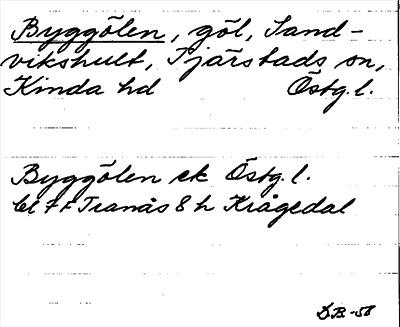 Byggölen, göl, Sand-
vikshult, Tjärstads sn,
Kinda hd Östg. l.
Byggölen ek Östg. l.
bl FF Tranås 8 h Krågedal
D.B.-58